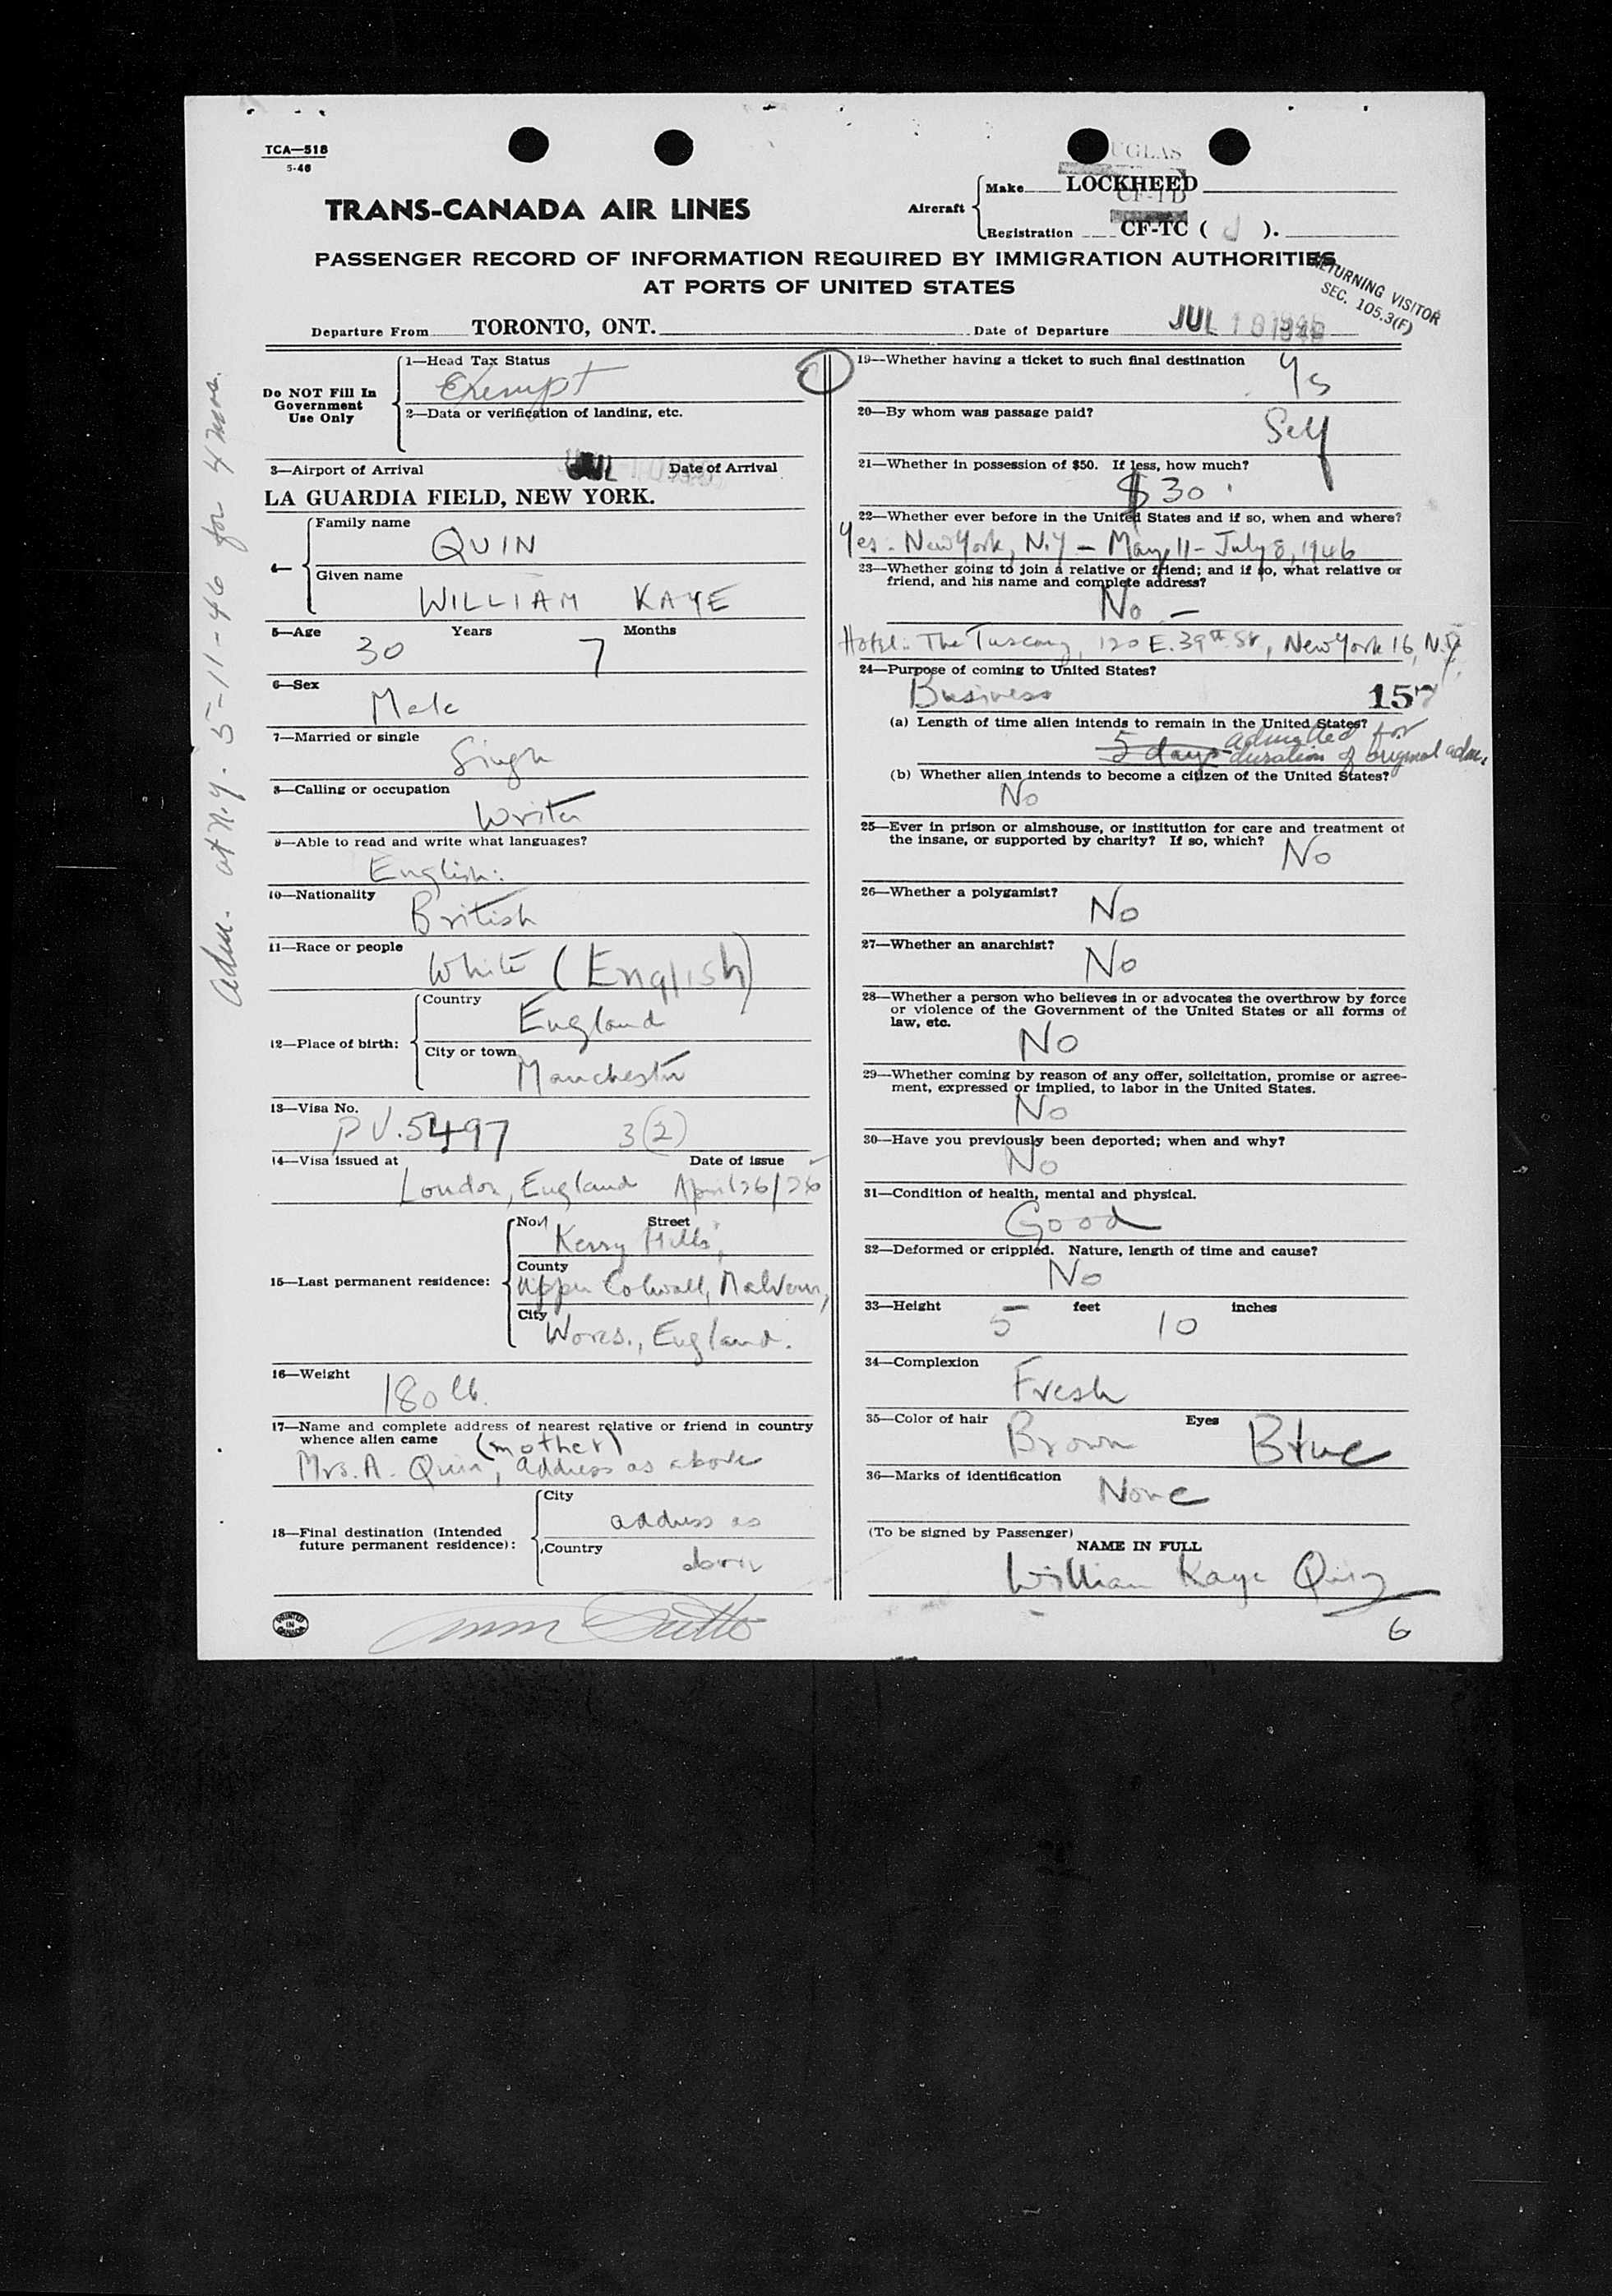 TCA—518
5-46
UGLAS
TRANS-CANADA AIR LINES
Aircraft
Make LOCKHEED
CF-TD
Registration CF-TC ( J ).
PASSENGER RECORD OF INFORMATION REQUIRED BY IMMIGRATION AUTHORITIES
AT PORTS OF UNITED STATES
RETURNING VISITOR
SEC. 105.3(F)
Departure From TORONTO, ONT. Date of Departure JUL 10 1946
Adm. at N.Y. 5-11-46 for 4 mos.
Do NOT Fill In
Government
Use Only
1—Head Tax Status
Exempt
2—Data or verification of landing, etc.
3—Airport of Arrival JUL 10 Date of Arrival
LA GUARDIA FIELD, NEW YORK.
4—
Family name
QUIN
Given name
WILLIAM KAYE
5—Age 30 Years 7 Months
6—Sex
Male
7—Married or single
Single
8—Calling or occupation
Writer
9—Able to read and write what languages?
English.
10—Nationality
British
11—Race or people
White (English)
12—Place of birth:
Country
England
City or town
Manchester
13—Visa No.
PV.5497 3(2)
14—Visa issued at Date of issue
London, England April 26/
15—Last permanent residence:
No. Street
Kerry Hills,
County
Upper Colwall, Malvern,
City
Worcs., England.
16—Weight
180 lb.
17—Name and complete address of nearest relative or friend in country
whence alien came (mother)
Mrs. A. Quin, address as above
18—Final destination (Intended
future permanent residence):
City
address as
Country
above
PRINTED
IN
CANADA
19—Whether having a ticket to such final destination Ys
20—By whom was passage paid?
Self
21—Whether in possession of $50. If less, how much?
$30
22—Whether ever before in the United States and if so, when and where?
Yes. New York, N.Y — May 11 - July 8, 1946
23—Whether going to join a relative or friend; and if so, what relative or
friend, and his name and complete address?
No —
Hotel: The Tuscany, 120 E. 39th St, New York 16, N.Y.
24—Purpose of coming to United States?
Business 157
(a) Length of time alien intends to remain in the United States?
5 days admitted for
duration of original adm.
(b) Whether alien intends to become a citizen of the United States?
No
25—Ever in prison or almshouse, or institution for care and treatment of
the insane, or supported by charity? If so, which? No
26—Whether a polygamist?
No
27—Whether an anarchist?
No
28—Whether a person who believes in or advocates the overthrow by force
or violence of the Government of the United States or all forms of
law, etc.
No
29—Whether coming by reason of any offer, solicitation, promise or agree-
ment, expressed or implied, to labor in the United States.
No
30—Have you previously been deported; when and why?
No
31—Condition of health, mental and physical.
Good
32—Deformed or crippled. Nature, length of time and cause?
No
33—Height 5 feet 10 inches
34—Complexion
Fresh
35—Color of hair Brown Eyes Blue
36—Marks of identification
None
(To be signed by Passenger)
NAME IN FULL
William Kaye Quin
6